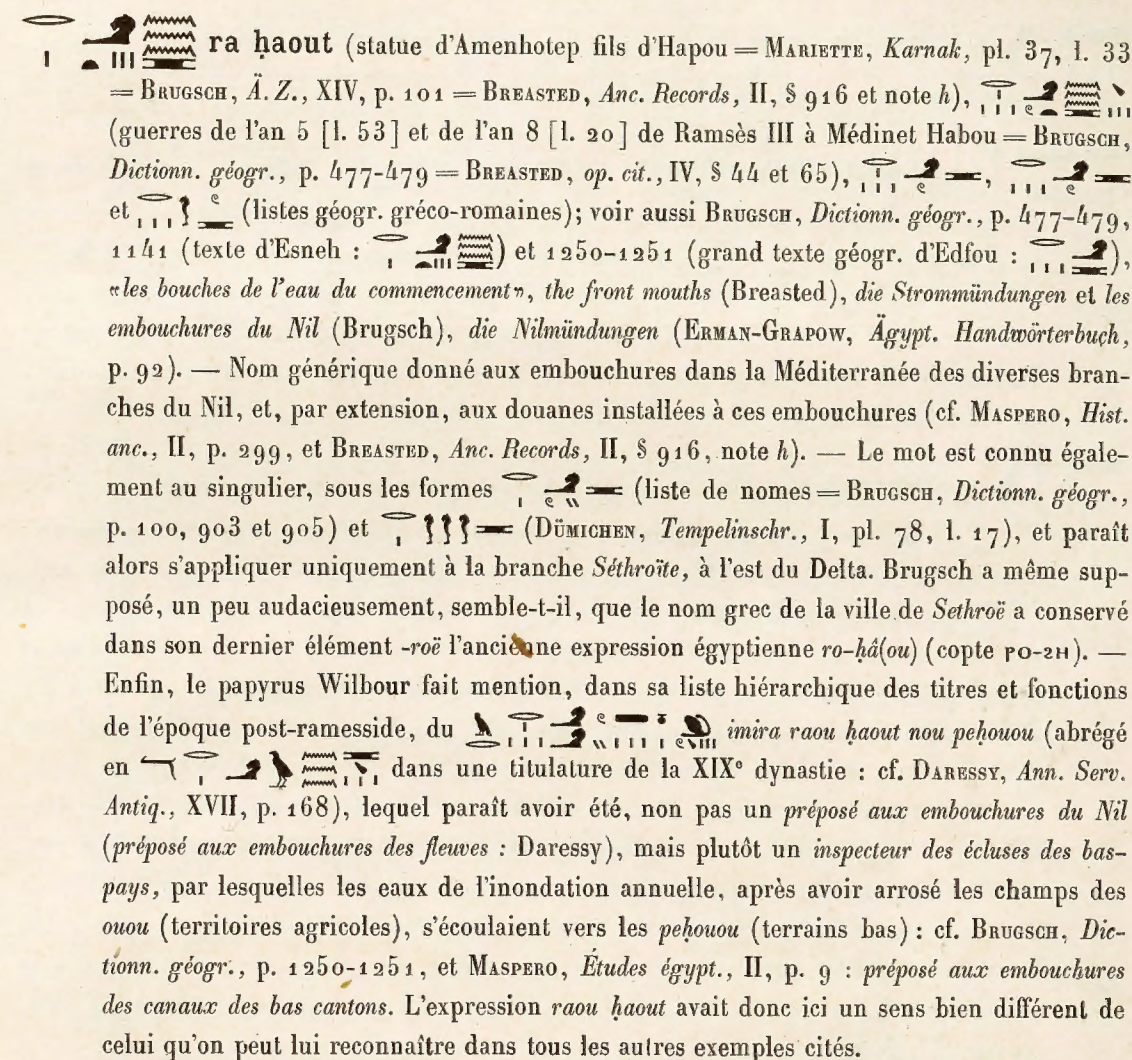 ra ḥaout (statue d'Amenhotep fils d'Hapou = MARIETTE, Karnak, pl. 37, l. 33
= BRUGSCH, Ä. Z., XIV, p. 101 = BREASTED, Anc. Records, II, § 916 et note h),
(guerres de l'an 5 [l. 53] et de l'an 8 [l. 20] de Ramsès III à Médinet Habou = BRUGSCH,
Dictionn. géogr., p. 477-479 = BREASTED, op. cit., IV, § 44 et 65), ,
et (listes géogr. gréco-romaines); voir aussi BRUGSCH, Dictionn. géogr., p. 477-479,
1141 (texte d'Esneh : ) et 1250-1251 (grand texte géogr. d'Edfou : ),
«les bouches de l'eau du commencement», the front mouths (Breasted), die Strommündungen et les
embouchures du Nil (Brugsch), die Nilmündungen (ERMAN-GRAPOW, Ägypt. Handwörterbuch,
p. 92). — Nom générique donné aux embouchures dans la Méditerranée des diverses bran-
ches du Nil, et, par extension, aux douanes installées à ces embouchures (cf. MASPERO, Hist.
anc., II, p. 299, et BREASTED, Anc. Records, II, § 916, note h). — Le mot est connu égale-
ment au singulier, sous les formes (liste de noms = BRUGSCH, Dictionn. géogr.,
p. 100, 903 et 905) et (DÜMICHEN, Tempelinschr., I, pl. 78, l. 17), et paraît
alors s'appliquer uniquement à la branche Séthroïte, à l'est du Delta. Brugsch a même sup-
posé, un peu audacieusement, semble-t-il, que le nom grec de la ville de Sethroë a conservé
dans son dernier élément -roë l'ancienne expression égyptienne ro-ḥâ(ou) (copte ⲣⲟ-ϩⲏ). —
Enfin, le papyrus Wilbour fait mention, dans sa liste hiérarchique des titres et fonctions
de l'époque post-ramesside, du imira raou ḥaout nou peḥouou (abrégé
en dans une titulature de la XIXe dynastie : cf. DARESSY, Ann. Serv.
Antiq., XVII, p. 168), lequel paraît avoir été, non pas un préposé aux embouchures du Nil
(préposé aux embouchures des fleuves : Daressy), mais plutôt un inspecteur des écluses des bas-
pays, par lesquelles les eaux de l'inondation annuelle, après avoir arrosé les champs des
ouou (territoires agricoles), s'écoulaient vers les peḥouou (terrains bas) : cf. BRUGSCH, Dic-
tionn. géogr., p. 1250-1251, et MASPERO, Études égypt., II, p. 9 : préposé aux embouchures
des canaux des bas cantons. L'expression raou ḥaout avait donc ici un sens bien différent de
celui qu'on peut lui reconnaître dans tous les autres exemples cités.